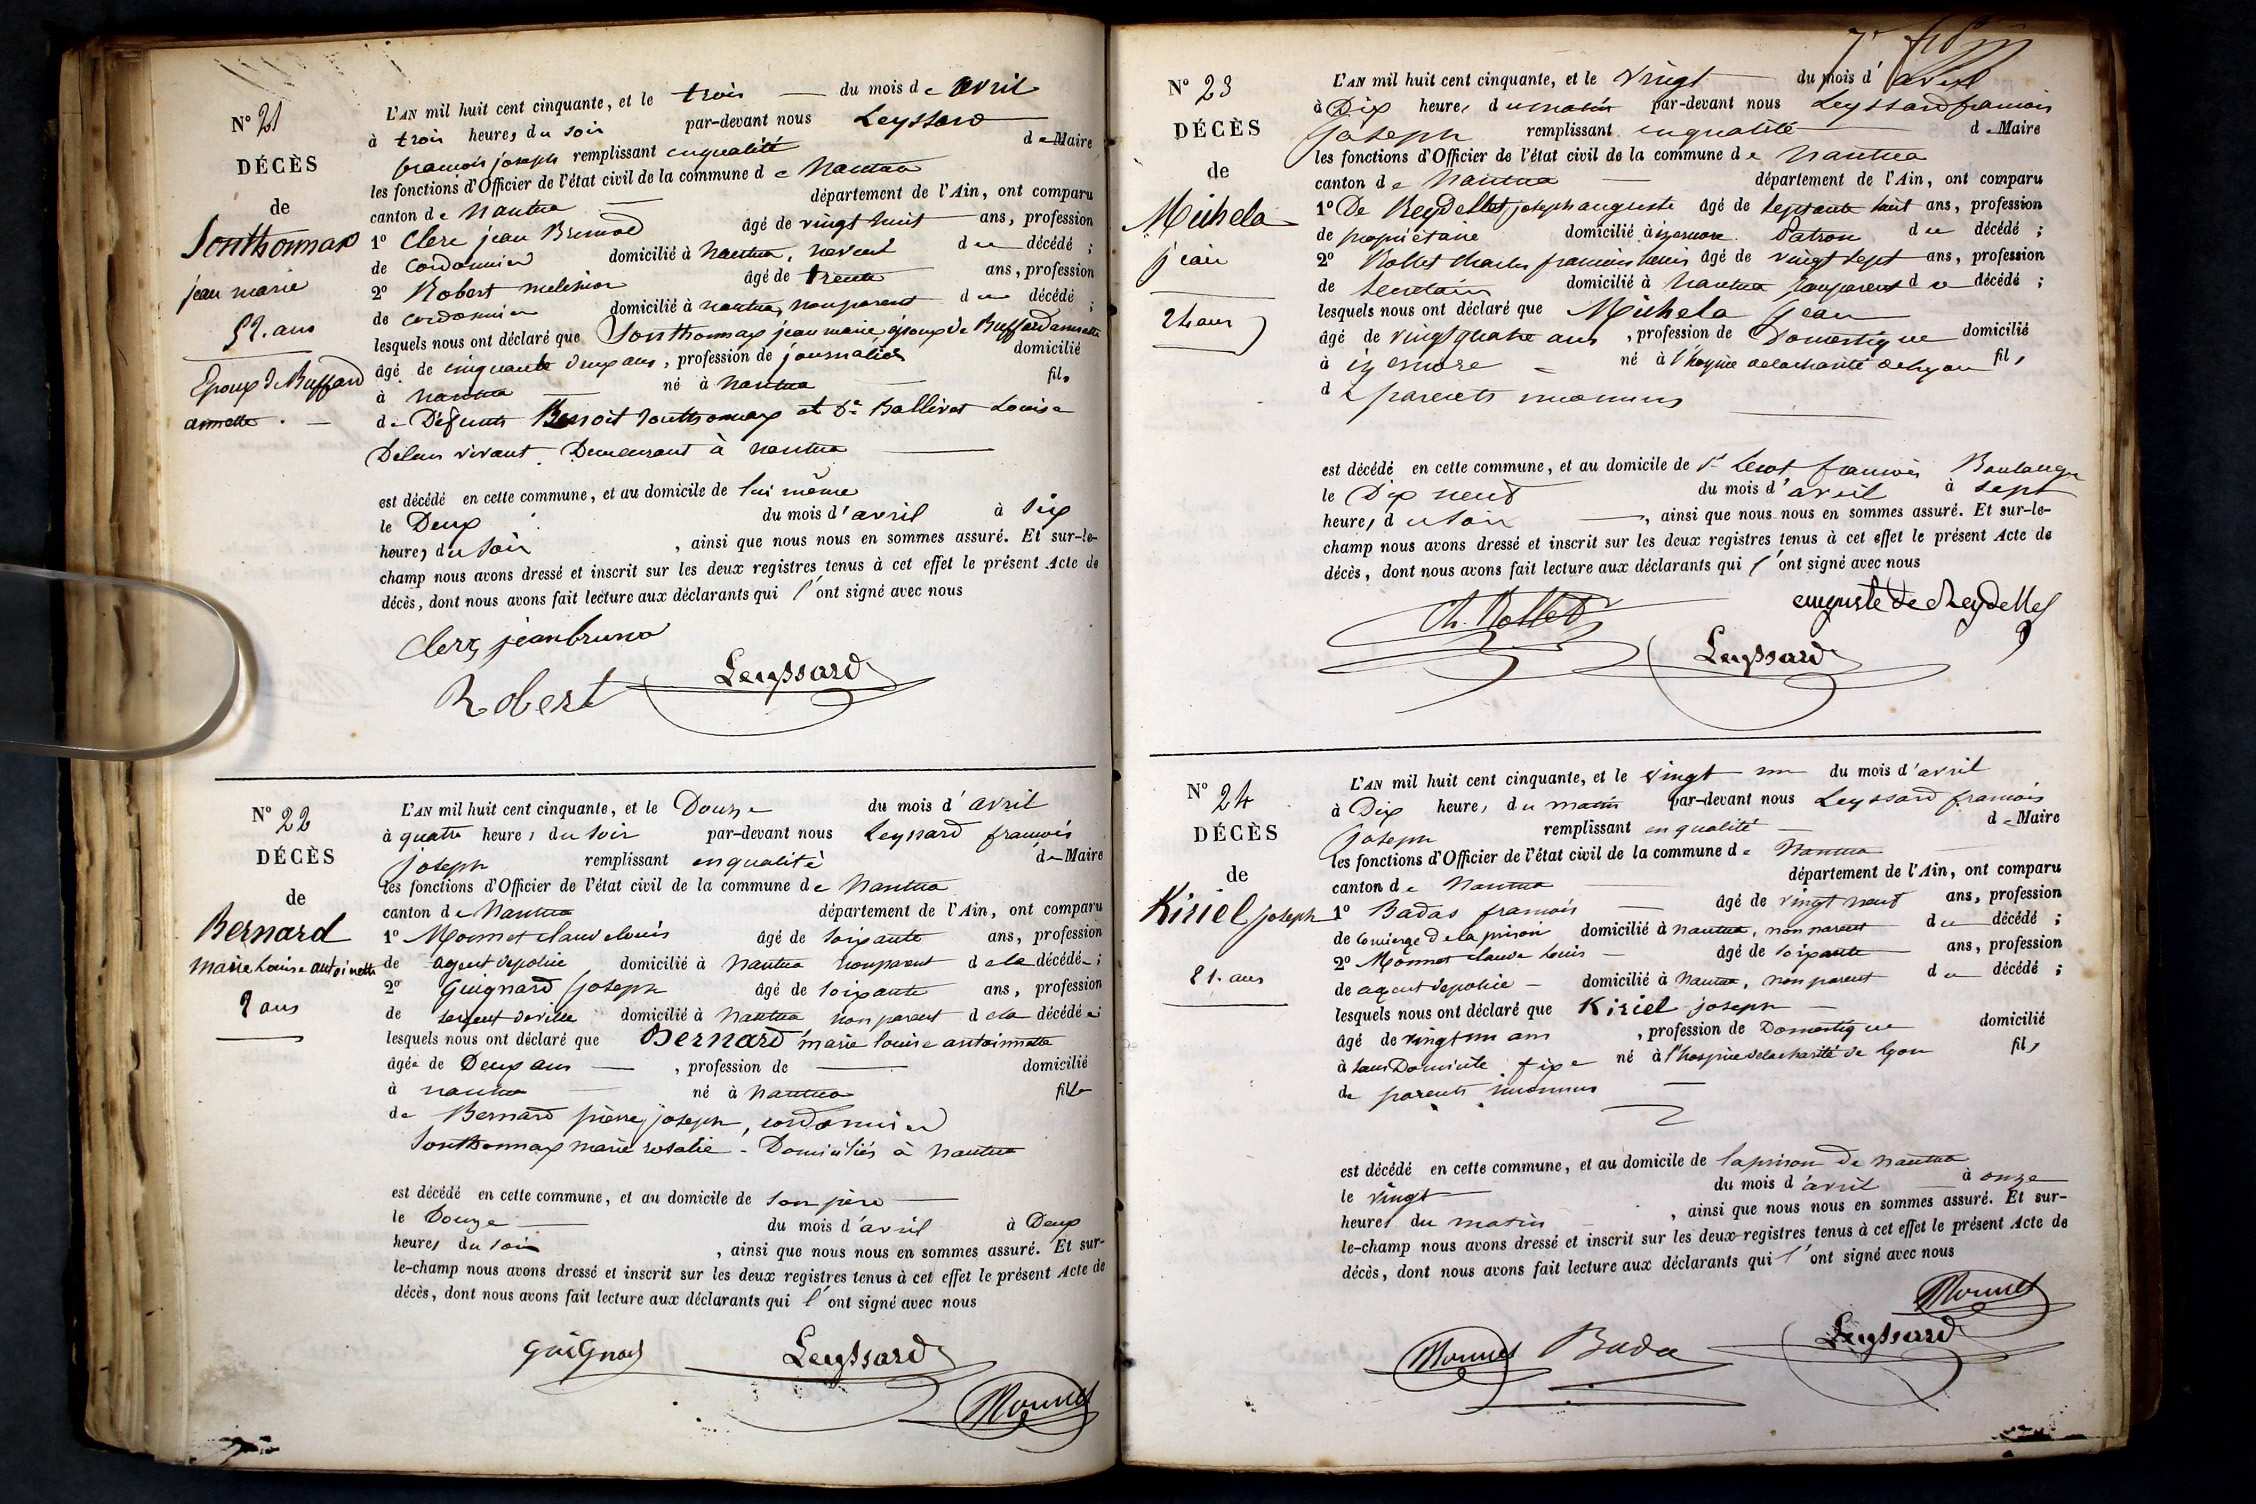 N° 21
DÉCÈS
de
Sonthonnax
jean marie
52. ans
Epoux de Buffard
annette
L'AN mil huit cent cinquante, et le trois du mois de avril
à trois heures du soir par-devant nous Leyssard
francois joseph remplissant en qualité de Maire
les fonctions d'Officier de l'état civil de la commune de Nantua
canton de Nantua département de l'Ain, ont comparu
1° Clerc jean Bruno âgé de vingt huit ans, profession
de Cordonnier domicilié à Nantua, neveu du décédé ;
2° Robert melchior âgé de trente ans, profession
de cordonnier domicilié à nantua, non parent du décédé ;
lesquels nous ont déclaré que Sonthonnax jean marie époux de Buffard annette
âgé de cinquante deux ans, profession de journalier domicilié
à nantua né à nantua fils
de Défunts Benoit Sonthonnax et De Ballivet Louise
De leur vivant Demeurant à nantua
est décédé en cette commune, et au domicile de lui même
le Deux du mois d'avril à six
heures du soir, ainsi que nous nous en sommes assuré. Et sur-le-
champ nous avons dressé et inscrit sur les deux registres tenus à cet effet le présent Acte de
décès, dont nous avons fait lecture aux déclarants qui l'ont signé avec nous
Clerc jean bruno
Robert Leyssard
N° 22
DÉCÈS
de
Bernard
marie Louise antoinette
2 ans
L'AN mil huit cent cinquante, et le Douze du mois d'avril
à quatre heures du soir par-devant nous Leyssard francois
joseph remplissant en qualité de Maire
les fonctions d'Officier de l'état civil de la commune de Nantua
canton de Nantua département de l'Ain, ont comparu
1° Monnet claude louis âgé de soixante ans, profession
de agent de police domicilié à Nantua non parent de la décédée ;
2° Guignard joseph âgé de soixante ans, profession
de sergent de ville domicilié à Nantua non parent de la décédée ;
lesquels nous ont déclaré que Bernard marie louise antoinette
âgée de Deux ans, profession de domicilié
à nantua né à Nantua fille
de Bernard pierre joseph, cordonnier
Sonthonnax marie rosalie - Domiciliés à Nantua
est décédé en cette commune, et au domicile de son père
le Douze du mois d'avril à Deux
heures du soir, ainsi que nous nous en sommes assuré. Et sur-
le-champ nous avons dressé et inscrit sur les deux registres tenus à cet effet le présent Acte de
décès, dont nous avons fait lecture aux déclarants qui l'ont signé avec nous
Guignard Leyssard
Monnet
N° 23
DÉCÈS
de
Michela
jean
24 ans
L'AN mil huit cent cinquante, et le vingt du mois d'avril
à Dix heures du matin par-devant nous Leyssard francois
joseph remplissant en qualité de Maire
les fonctions d'Officier de l'état civil de la commune de Nantua
canton de Nantua département de l'Ain, ont comparu
1° De Reydellet joseph auguste âgé de septante huit ans, profession
de propriétaire domicilié à izernore. Patron du décédé ;
2° Rollet charles francois âgé de vingt sept ans, profession
de secretaire domicilié à Nantua non parent du décédé ;
lesquels nous ont déclaré que Michela jean
âgé de vingt quatre ans, profession de Domestique domicilié
à izernore né à l'hospice de la charité de lyon fils
de parents inconnus
est décédé en cette commune, et au domicile de Sr francois Boulanger
le Dix neuf du mois d'avril à sept
heures du soir, ainsi que nous nous en sommes assuré. Et sur-le-
champ nous avons dressé et inscrit sur les deux registres tenus à cet effet le présent Acte de
décès, dont nous avons fait lecture aux déclarants qui l'ont signé avec nous
Ch. Rollet auguste de Reydellet
Leyssard
N° 24
DÉCÈS
de
Kiriel joseph
21. ans
L'AN mil huit cent cinquante, et le vingt un du mois d'avril
à Dix heures du matin par-devant nous Leyssard francois
joseph remplissant en qualité de Maire
les fonctions d'Officier de l'état civil de la commune de Nantua
canton de Nantua département de l'Ain, ont comparu
1° Badas francois âgé de vingt neuf ans, profession
de concierge de la prison domicilié à nantua, non parent du décédé ;
2° Monnet claude louis âgé de soixante ans, profession
de agent de police domicilié à Nantua, non parent du décédé ;
lesquels nous ont déclaré que Kiriel joseph
âgé de vingt un ans, profession de Domestique domicilié
à sans Domicile fixe né à l'hospice de la charité de lyon fils
de parents inconnus
est décédé en cette commune, et au domicile de la prison de nantua
le vingt du mois d'avril à onze
heures du matin, ainsi que nous nous en sommes assuré. Et sur-
le-champ nous avons dressé et inscrit sur les deux registres tenus à cet effet le présent Acte de
décès, dont nous avons fait lecture aux déclarants qui l'ont signé avec nous
Monnet
Monnet Bada Leyssard